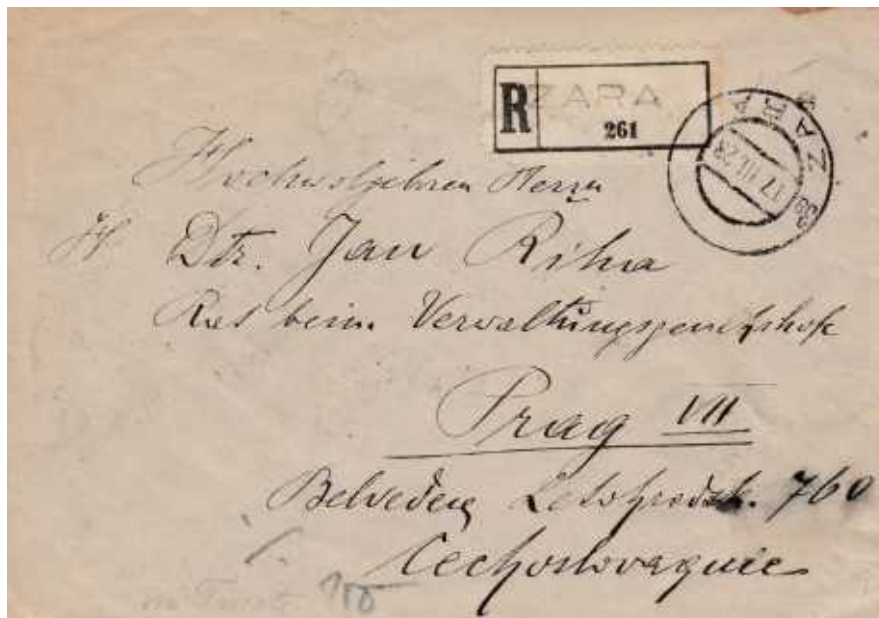 R ZARA
261
ZARA
17.III.23
Hochwolgeboren Herrn
H Dtr. Jan Riha
Rat beim Verwaltungsgerichtshofe
Prag VII
Belvedere 760
Cechoslovaquie